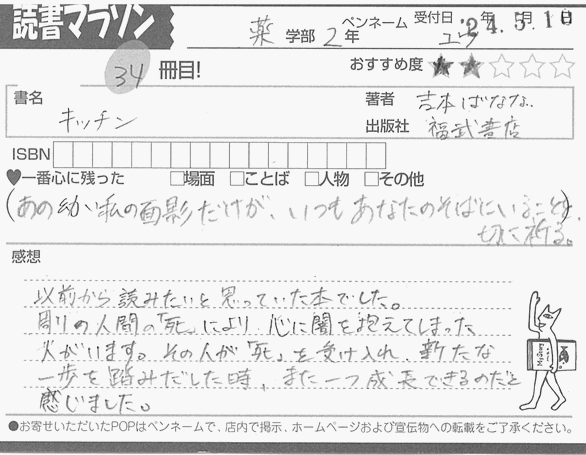 読書マラソン
薬 学部 2年 ペンネーム ユウ 受付日 '24.5.16
34 冊目! おすすめ度 ★★☆☆☆
書名 キッチン
著者 吉本ばなな
出版社 福武書店
ISBN
♥一番心に残った □場面 □ことば □人物 □その他
(あの幼い私の面影だけが、いつもあなたのそばにいることを、
切に祈る。)
感想
以前から読みたいと思っていた本でした。
周りの人間の「死」により心に闇を抱えてしまった
人がいます。その人が「死」を受け入れ、新たな
一歩を踏みだした時、また一つ成長できるのだと
感じました。
●お寄せいただいたPOPはペンネームで、店内で掲示、ホームページおよび宣伝物への転載をご了承ください。